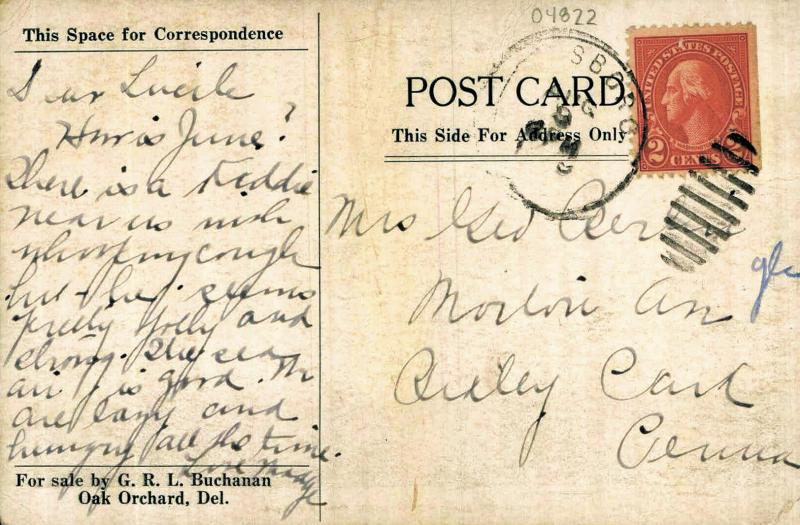 04822
This Space for Correspondence
Dear Lucile
How is June?
There is a kiddie
near us with
whooping cough
but he seems
pretty jolly and
strong. The sea
air is good. We
are lazy and
hungry all the time.
Love Madge
For sale by G. R. L. Buchanan
Oak Orchard, Del.
POST CARD
This Side For Address Only
SBORO
UNITED STATES POSTAGE
2 CENTS 2
Mrs Geo
Morton Av
Ridley Park
Penna